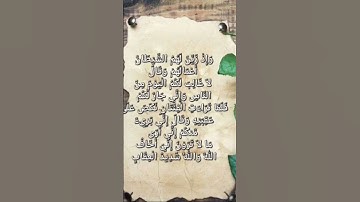 وَإِذْ زَيَّنَ لَهُمُ الشَّيْطَانُ
أَعْمَالَهُمْ وَقَالَ
لَا غَالِبَ لَكُمُ الْيَوْمَ مِنَ
النَّاسِ وَإِنِّي جَارٌ لَكُمْ
فَلَمَّا تَرَاءَتِ الْفِئَتَانِ نَكَصَ عَلَى
عَقِبَيْهِ وَقَالَ إِنِّي بَرِيءٌ
مِنْكُمْ إِنِّي أَرَى
مَا لَا تَرَوْنَ إِنِّي أَخَافُ
اللَّهَ وَاللَّهُ شَدِيدُ الْعِقَابِ